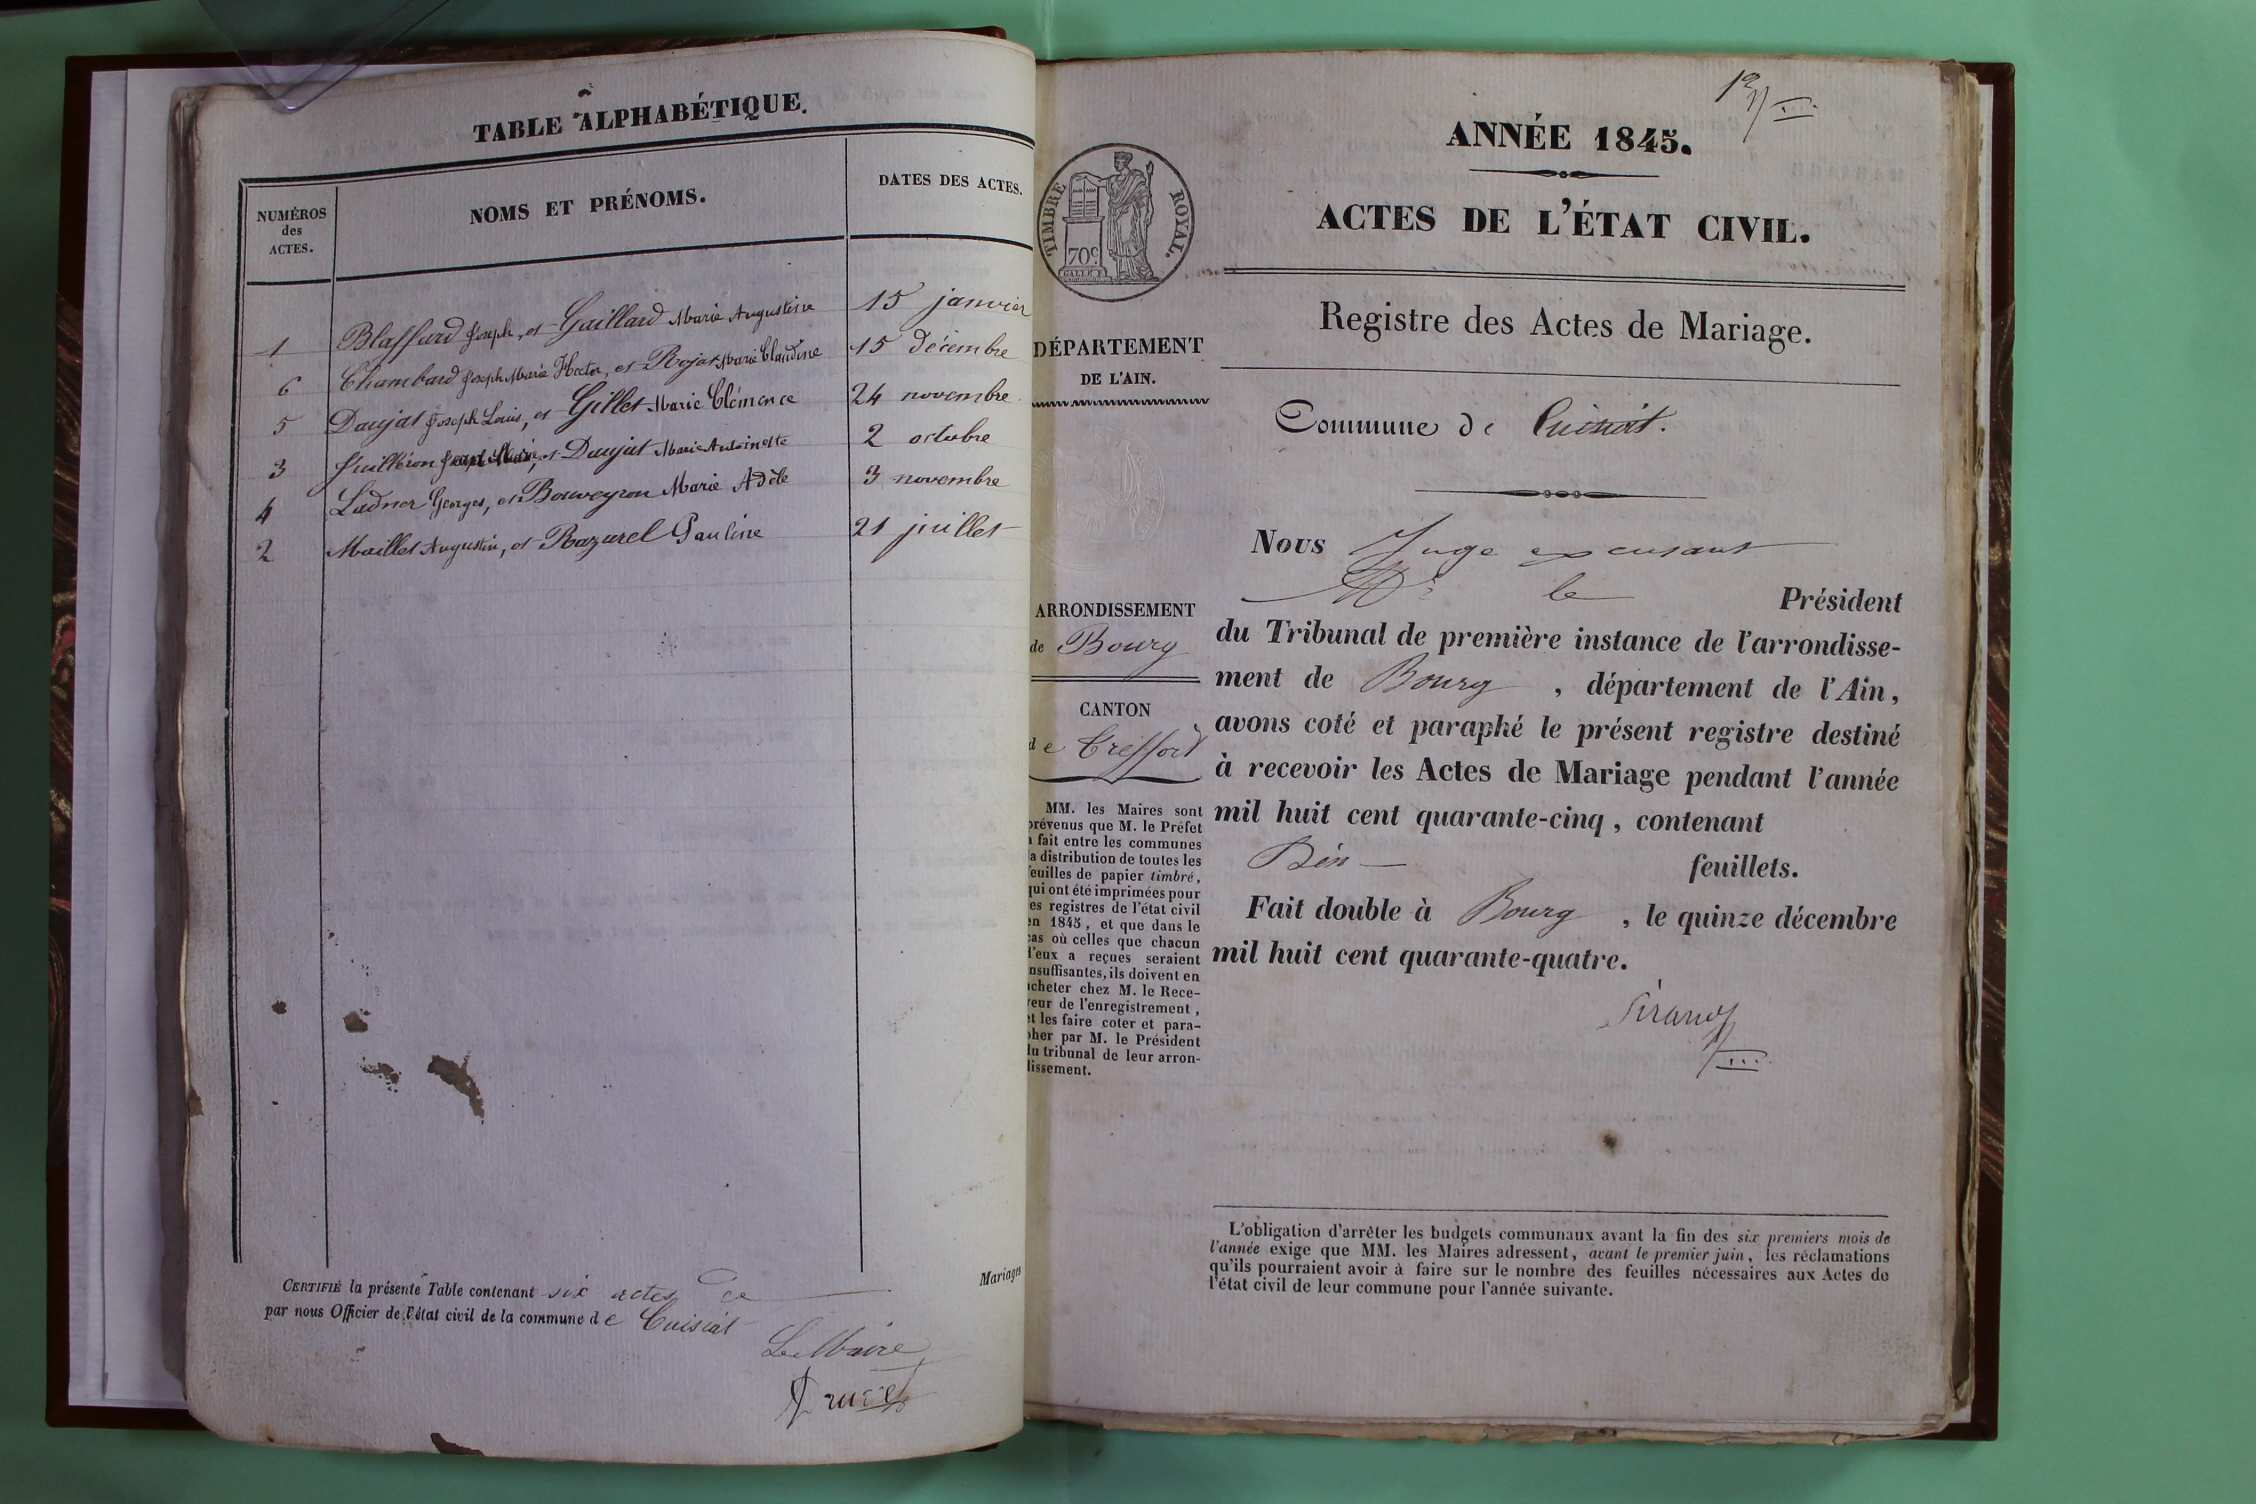 TABLE ALPHABÉTIQUE.
NUMÉROS
des
ACTES.
NOMS ET PRÉNOMS.
DATES DES ACTES.
1 Blaffurd Joseph, et Gaillard Marie Augustine 15 janvier
6 Chambard Joseph Marie Hector, et Rojat Marie Claudine 15 décembre
5 Daujat Joseph Louis, et Gillet Marie Clémence 24 novembre
3 Juilléron et Daujat Marie Antoinette 2 octobre
4 Ladner Georges, et Bouveyron Marie Adèle 3 novembre
2 Maillet Augustin, et Razurel Pauline 21 juillet
CERTIFIÉ la présente Table contenant six actes ce
par nous Officier de l'état civil de la commune de Cuisiat
Le Maire
Mariages
TIMBRE ROYAL.
70c
DÉPARTEMENT
DE L'AIN.
ARRONDISSEMENT
de Bourg
CANTON
de Treffort
MM. les Maires sont
prévenus que M. le Préfet
a fait entre les communes
la distribution de toutes les
feuilles de papier timbré,
qui ont été imprimées pour
les registres de l'état civil
en 1845, et que dans le
cas où celles que chacun
d'eux a reçues seraient
insuffisantes, ils doivent en
acheter chez M. le Rece-
veur de l'enregistrement,
et les faire coter et para-
pher par M. le Président
du tribunal de leur arron-
dissement.
ANNÉE 1845.
ACTES DE L'ÉTAT CIVIL.
Registre des Actes de Mariage.
Commune de Cuisiat.
Nous Juge excusant
Mr le Président
du Tribunal de première instance de l'arrondisse-
ment de Bourg, département de l'Ain,
avons coté et paraphé le présent registre destiné
à recevoir les Actes de Mariage pendant l'année
mil huit cent quarante-cinq, contenant
feuillets.
Fait double à Bourg, le quinze décembre
mil huit cent quarante-quatre.
L'obligation d'arrêter les budgets communaux avant la fin des six premiers mois de
l'année exige que MM. les Maires adressent, avant le premier juin, les réclamations
qu'ils pourraient avoir à faire sur le nombre des feuilles nécessaires aux Actes de
l'état civil de leur commune pour l'année suivante.